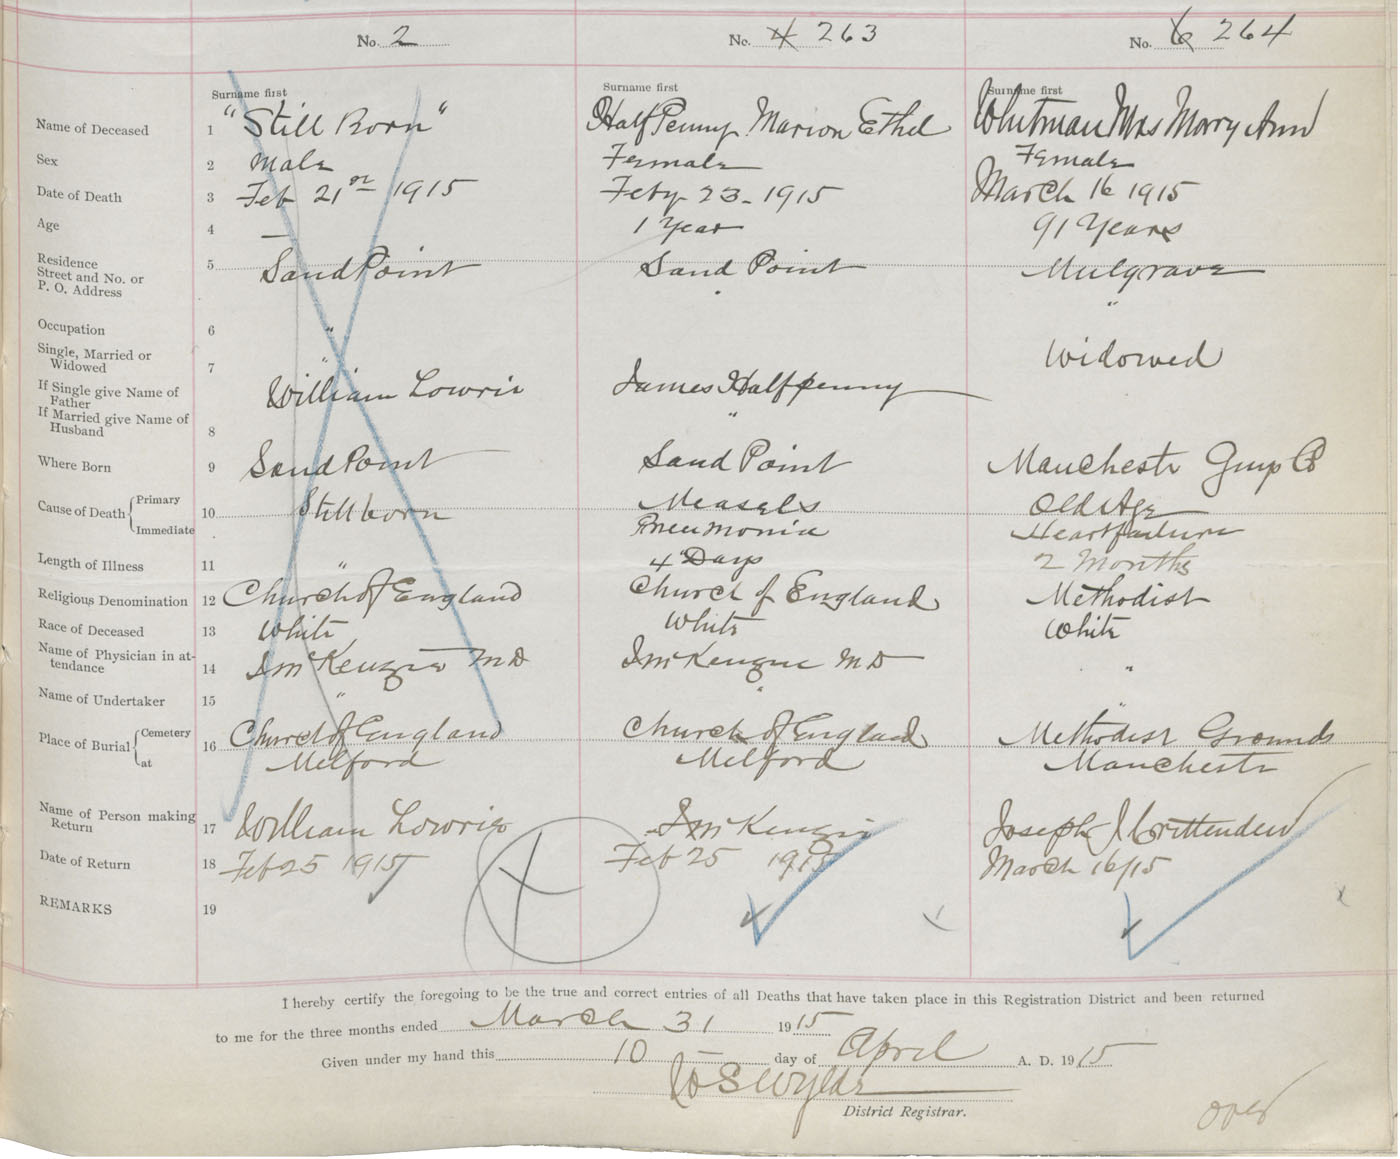 No. 2 No. 4 263 No. 6 264
Surname first Surname first Surname first
Name of Deceased 1 "Still Born" HalfPenny Marion Ethel Whitman Mrs Marry Ann
Sex 2 Male Female Female
Date of Death 3 Feb 21st 1915 Feby 23 - 1915 March 16 1915
Age 4 — 1 Year 91 Years
Residence Street and No. or P. O. Address 5 Sand Point Sand Point Mulgrave
Occupation 6 " " "
Single, Married or Widowed 7 " Widowed
If Single give Name of Father William Lowrie James Halfpenny
If Married give Name of Husband 8 "
Where Born 9 Sand Point Sand Point Manchester Guys Co
Cause of Death { Primary 10 Still born Measels Old Age
Immediate Pneumonia Heart failure
Length of Illness 11 " 4 Days 2 Months
Religious Denomination 12 Church of England Church of England Methodist
Race of Deceased 13 White White White
Name of Physician in attendance 14 J McKenzie MD J McKenzie MD "
Name of Undertaker 15 " " "
Place of Burial { Cemetery 16 Church of England Church of England Methodist Grounds
at Milford Milford Manchester
Name of Person making Return 17 William Lowrie J McKenzie Joseph J Crittenden
Date of Return 18 Feb 25 1915 Feb 25 1915 March 16/15
REMARKS 19
I hereby certify the foregoing to be the true and correct entries of all Deaths that have taken place in this Registration District and been returned
to me for the three months ended March 31 1915
Given under my hand this 10 — day of April A. D. 1915
Wylde
District Registrar.
over